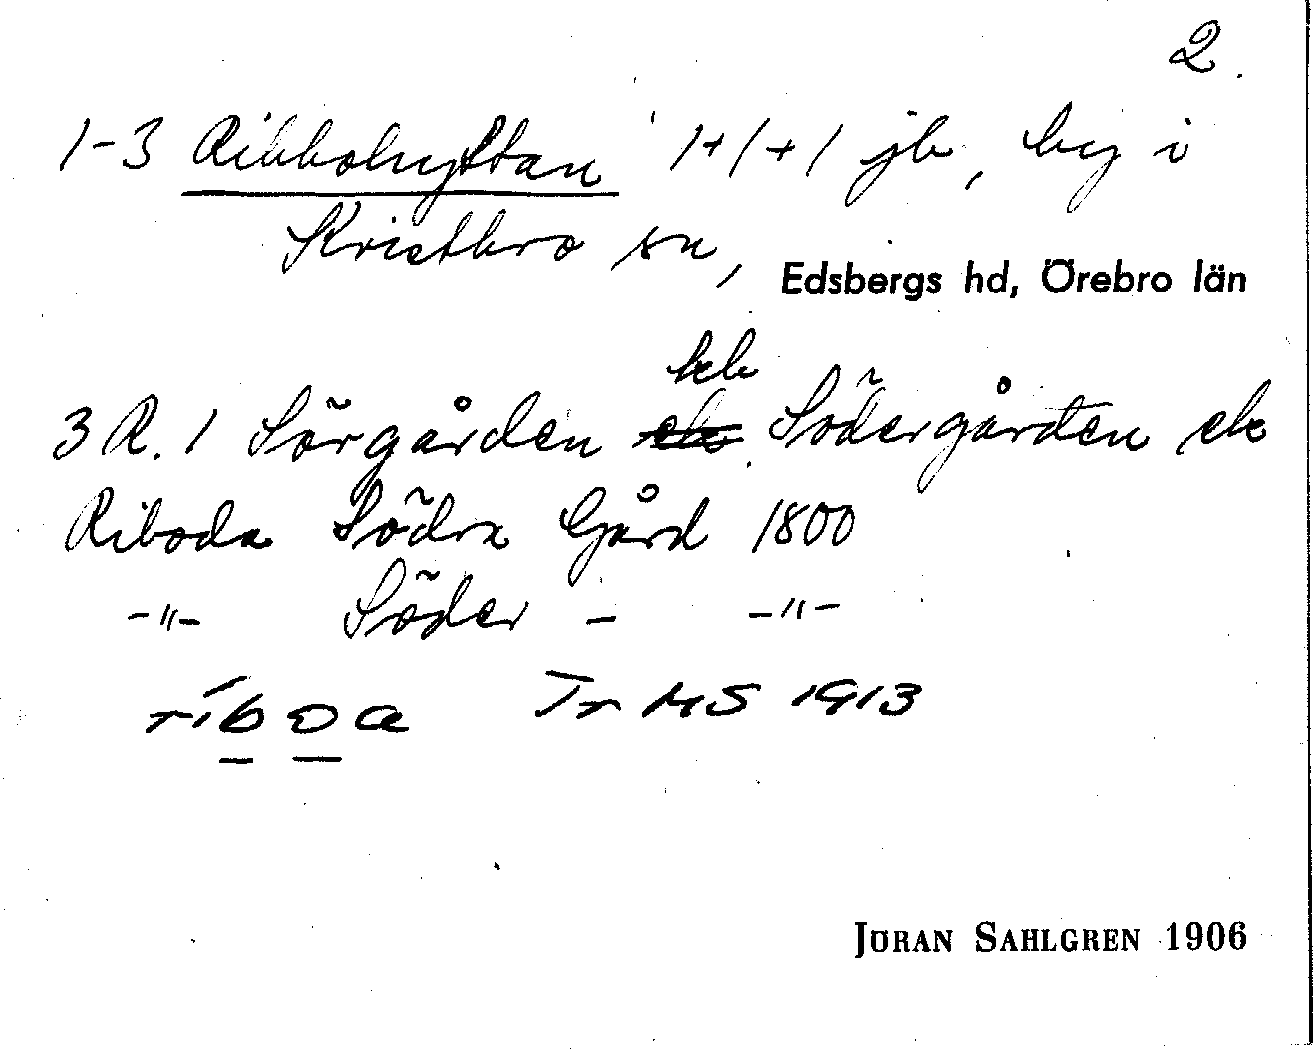 2.
1-3 Ribbohyttan 1+1+1 jb, by i
Kvistbro sn, Edsbergs hd, Örebro län
kb
3 R. 1 Sörgården Södergården ek
Riboda Södra Gård 1800
-"- Söder - -"-
ríboa Tr HS 1913
JÖRAN SAHLGREN 1906